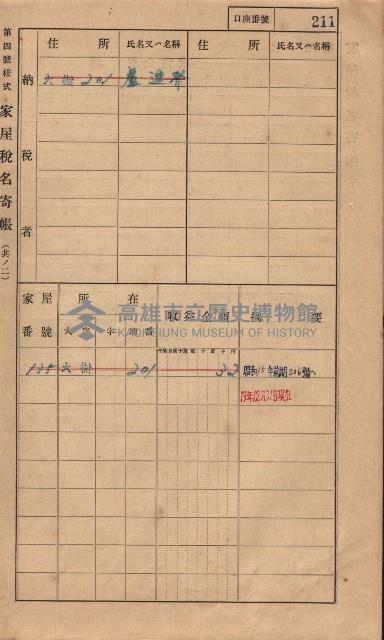 口座番號 211
第四號樣式 家屋稅名寄帳 (其ノ二)
納稅者
住所 氏名又ハ名稱 住所 氏名又ハ名稱
大樹 201 盧進
家屋番號 所在 收益金額 摘要
大字 字 地番
135 大樹 201 32 昭和15年前期206號へ
13年12月31日現在
高雄市立歷史博物館
KAOHSIUNG MUSEUM OF HISTORY